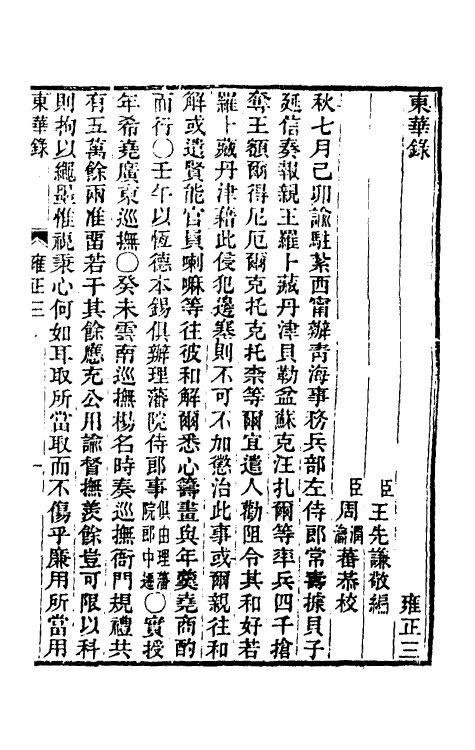 東華錄
雍正三
臣王先謙敬編
臣周潤蕃瀹蕃恭校
秋七月己卯諭駐紮西甯辦青海事務兵部左侍郎常壽據貝子
延信奏報親王羅卜藏丹津貝勒盆蘇克汪扎爾等率兵四千搶
奪王額爾得尼厄爾克托克托柰等爾宜遣人勸阻令其和好若
羅卜藏丹津藉此侵犯邊塞則不可不加懲治此事或爾親往和
解或遣賢能官員喇嘛等往彼和解爾悉心籌畫與年羹堯商酌
而行〇壬午以恆德本錫俱辦理藩院侍郎事俱由理藩院郎中遷〇實授
年希堯廣東巡撫〇癸未雲南巡撫楊名時奏巡撫衙門規禮共
有五萬餘兩准畱若干其餘應充公用諭督撫羨餘豈可限以科
則拘以繩墨惟視秉心何如耳取所當取而不傷乎廉用所當用
東華錄 雍正三 一